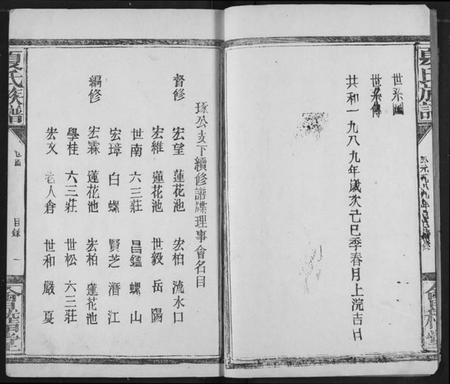 夏氏族譜
世系圖
世系傳
共和一九八九年歲次己巳季春月上浣吉日
琢公支下續修譜牒理事會名目
督修 宏望 蓮花池 宏柏 流水口
宏維 蓮花池 世毅 岳陽
世南 六三莊 昌鑑 螺山
宏璋 白螺 賢芝 潛江
編修 宏霖 蓮花池 宏柏 蓮花池
學桂 六三莊 世松 六三莊
宏文 人倉 世和 嚴夏
夏氏族譜
目錄 一
會